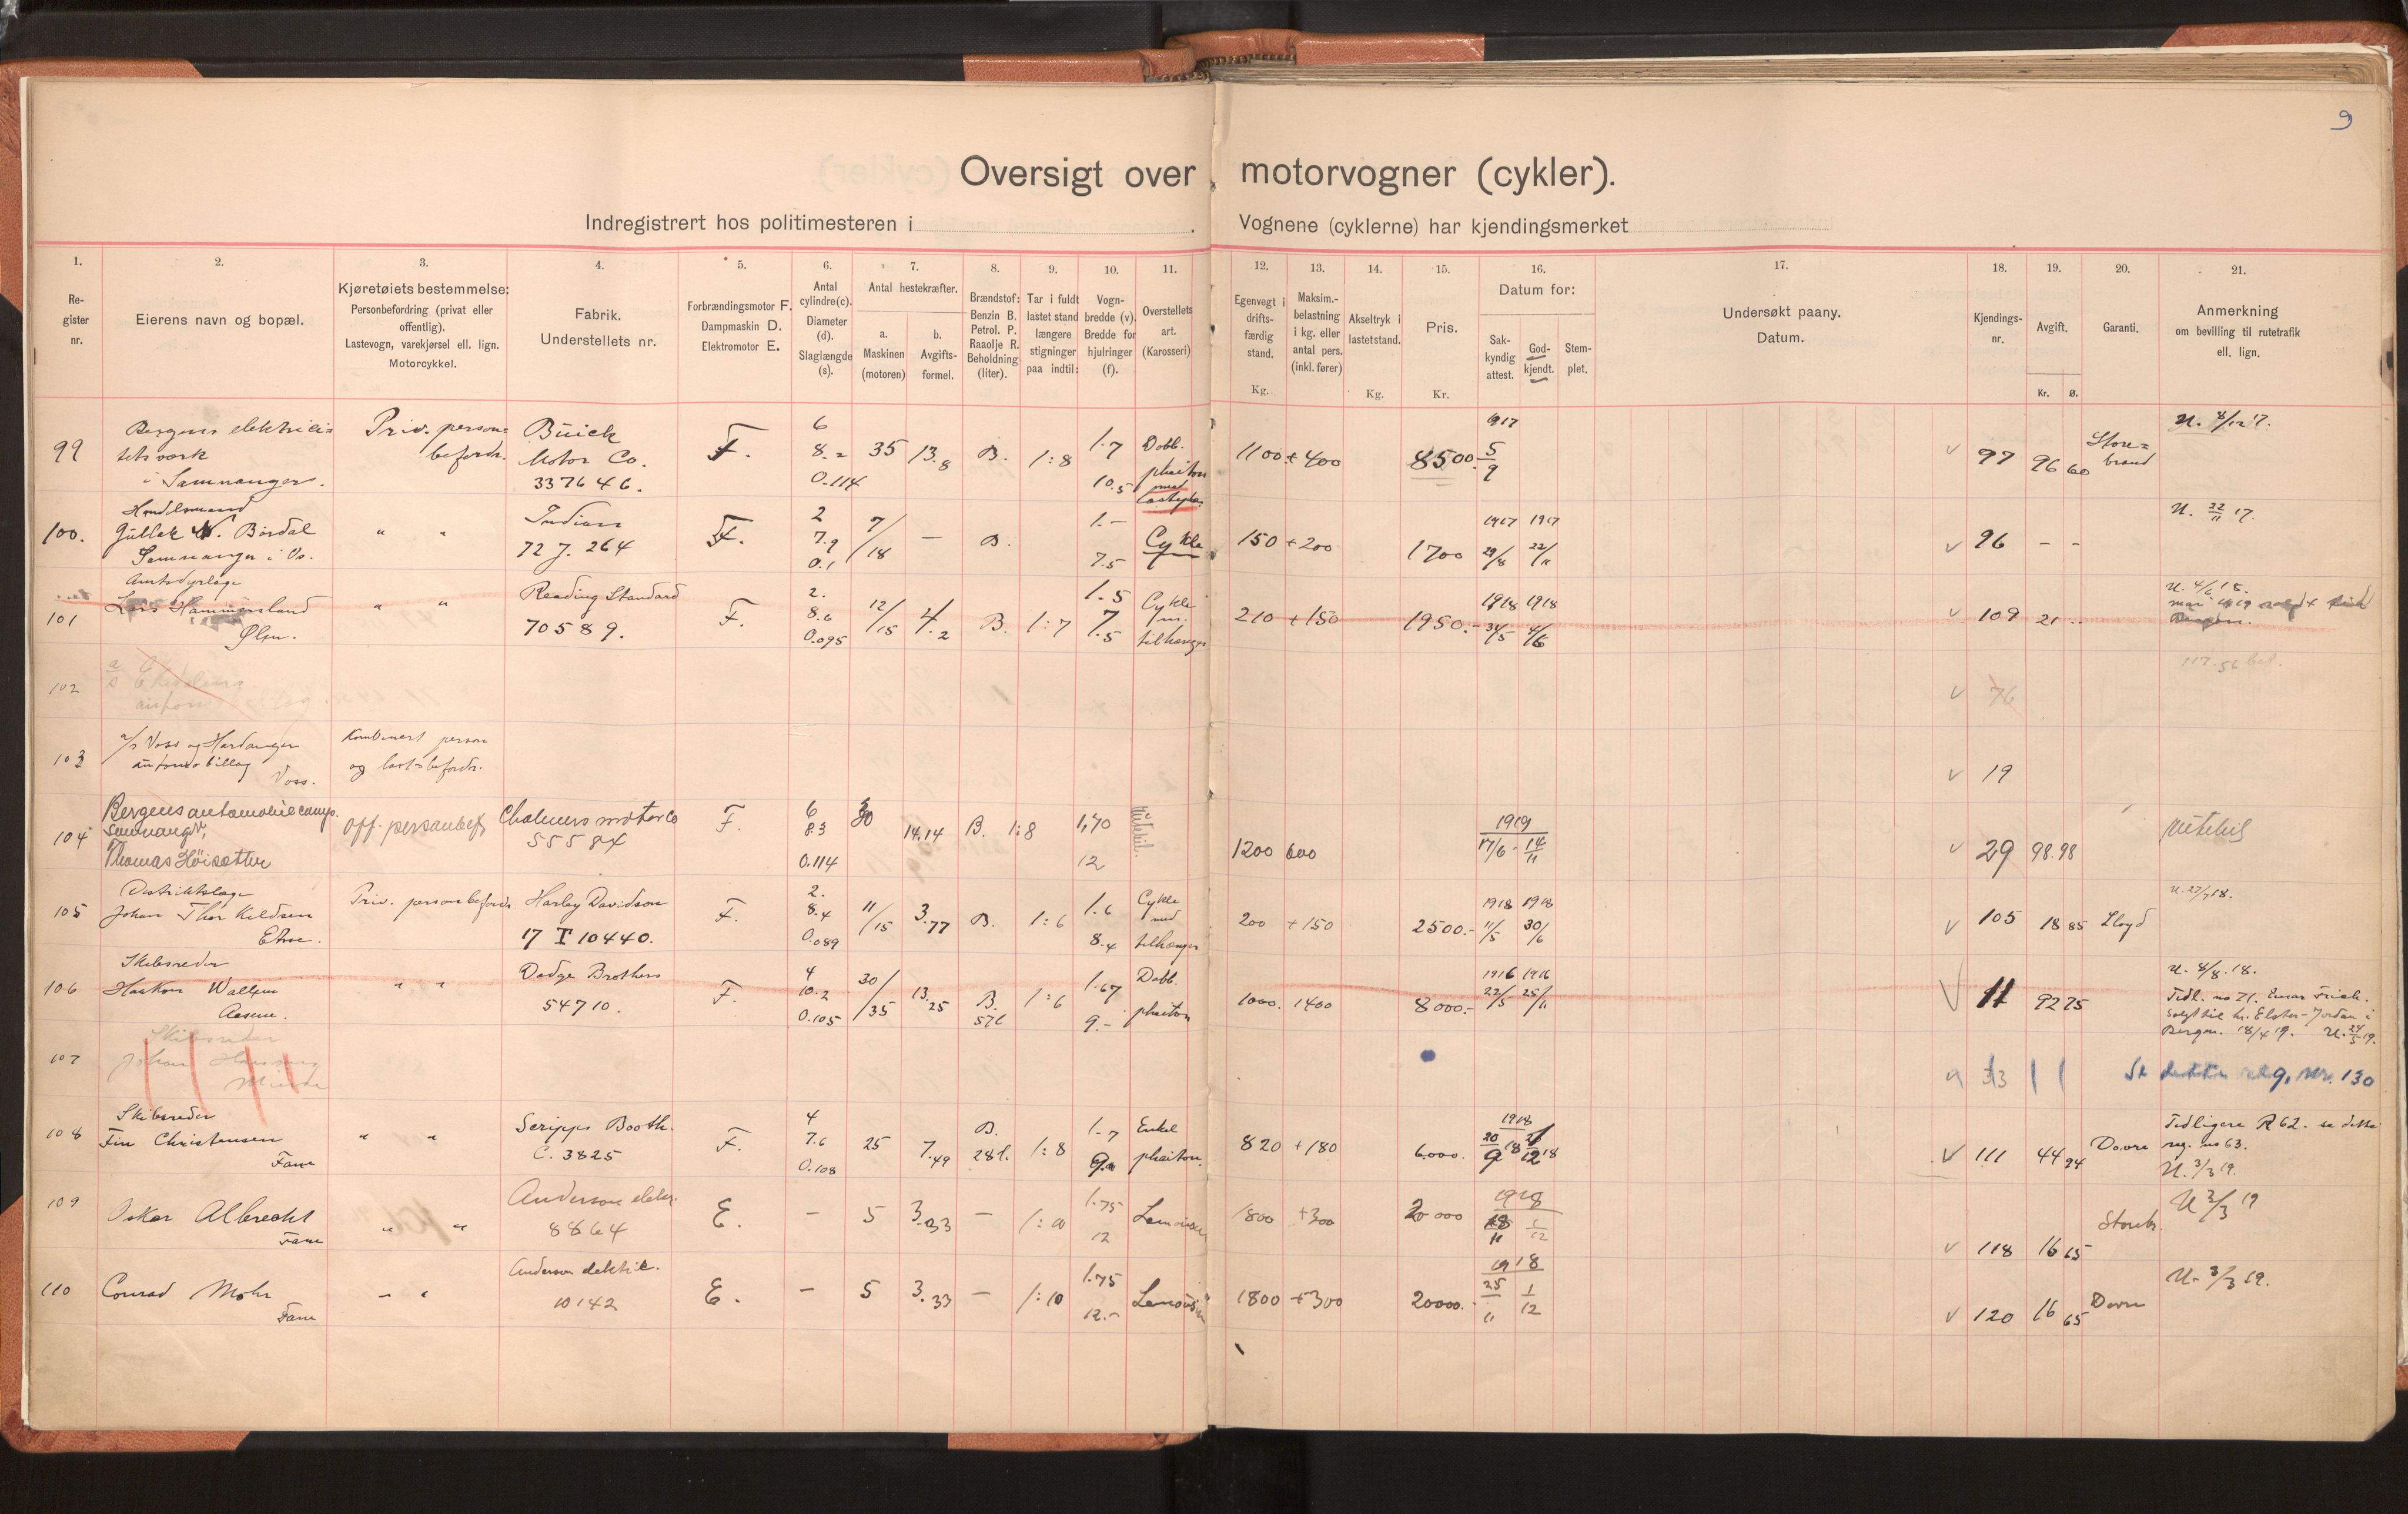 9
Oversigt over motorvogner (cykler).
Indregistrert hos politimesteren i . Vognene (cyklerne) har kjendingsmerket
1. 2. 3. 4. 5. 6. 7. 8. 9. 10. 11. 12. 13. 14. 15. 16. 17. 18. 19. 20. 21.
Re-
gister
nr.
Eierens navn og bopæl.
Kjøretøiets bestemmelse:
Personbefordring (privat eller
offentlig).
Lastevogn, varekjørsel ell. lign.
Motorcykkel.
Fabrik.
Understellets nr.
Forbrændingsmotor F.
Dampmaskin D.
Elektromotor E.
Antal
cylindre(c).
Diameter
(d).
Slaglængde
(s).
Antal hestekræfter.
a.
Maskinen
(motoren)
b.
Avgifts-
formel.
Brændstof:
Benzin B.
Petrol. P.
Raaolje R.
Beholdning
(liter).
Tar i fuldt
lastet stand
længere
stigninger
paa indtil:
Vogn-
bredde (v).
Bredde for
hjulringer
(f).
Overstellets
art.
(Karosseri)
Egenvegt i
drifts-
færdig
stand.
Kg.
Maksim.-
belastning
i kg. eller
antal pers.
(inkl. fører)
Akseltryk i
lastet stand.
Kg.
Pris.
Kr.
Datum for:
Sak-
kyndig
attest.
God-
kjendt.
Stem-
plet.
Undersøkt paany.
Datum.
Kjendings-
nr.
Avgift.
Kr. Ø.
Garanti.
Anmerkning
om bevilling til rutetrafik
ell. lign.
99 Bergens elektrici-
tetsværk
i Samnanger.
Priv. person-
befordr.
Buick
Motor Co.
337646.
F. 6 8.2 0.114 35 13.8 B. 1:8 1.7 10.5
Dobb.
phaiton
med
1100 + 400 8500.- 1917 5/9 97 96 60
Store-
brand
U. 4/12 17.
100. Handelsmand
Gullak N. Børdal
Samnanger i Os.
" "
Indian
72 J. 264
F. 2 7.9 0.1 7/18 — B. 1.- 7.5 Cykle
150 + 200 1700 1917 1917 29/8 22/11 96 - -
U. 22/11 17.
101 Amtsdyrlæge
Lars Hammersland
Ølen.
" "
Reading Standard
70589.
F. 2. 8.6 0.095 12/15 4.2 B. 1:7 1.5 7.5
Cykle
m.
tilhænger
210 + 150 1950.- 1918 1918 31/5 4/6 109 21 -
U. 4/6 18.
mai 1919
102
a/s
76
117.56 bet.
103 a/s Voss og Hardanger
automobillag
Voss.
Kombinert person
og last-befordr.
19
104 Bergens automobilcomp.
Samnanger,
Thomas Höisætter
off. personbef.
Chalmers motor Co
55584
F. 6 83 0.114 30 14.14 B. 1:8 1,70 12 rutebil.
1200 600 1919 17/6 - 14/11 29 98.98
rutebil
105 Distriktslæge
Johan Thor Kildsen
Etne.
Priv. personbefordr.
Harley Davidson
17 T 10440.
F. 2. 8.4 0.089 11/15 3.77 B. 1:6 1.6 8.4
Cykle
med
tilhænger
200 + 150 2500.- 1918 1918 11/5 30/6 105 18 85 Lloyd
U. 27/7 18.
106 Skibsreder
Haakon Wallem
Aasene.
" "
Dodge Brothers
54710.
F. 4 10.2 0.105 30/35 13.25 B. 57 l 1:6 1.67 9.-
Dobb.
phaiton
1000. 1400 8000.- 1916 1916 22/5 25/11 11 92 75
U. 8/8.18.
Tidl. no 71. Einar Frich.
Solgt til hr. Elster-Jordan i
Bergen. 18/4 19. U. 24/5 19.
107 Skibsreder
Johan Hansens
Minde
33
Se dette reg. nr. 130
108 Skibsreder
Fin Christensen
Fane
" "
Scripps Booth.
C. 3825
F. 4 7.6 0.108 25 7.49 B. 28 l. 1:8 1.7 9.-
Enkel
phaiton.
820 + 180 6.000. 1918 20/9 18 12 18 111 44 94 Dovre
Tidligere R 62. se dette
reg. no 63.
U. 3/3 19.
109 Oskar Albrecht
Fane
" "
Anderson elektr.
8864
E. - 5 3.33 - 1:10 1.75 12
1800 + 300 20 000 1918 18/11 1/12 118 16 65 Storebr.
U 3/3 19
110 Conrad Mohr
Fane
" "
Anderson elektric.
10142
E. - 5 3.33 - 1:10 1.75 12.-
1800 + 300 20000.- 1918 25/11 1/12 120 16 65 Dovre
U. 3/3 19.